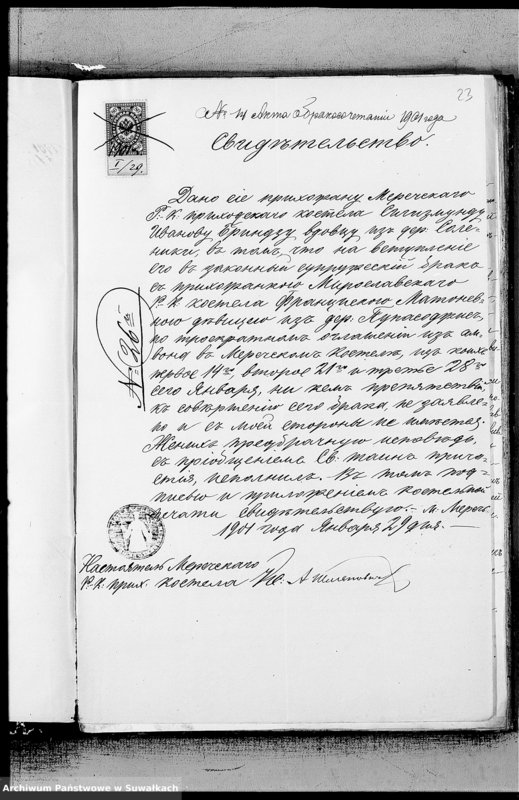 23
№ 14 Акта бракосочетаній 1901 года
Свидѣтельство.
1901
I/29
Дано сіе прихожану Меречскаго
Р.-К. приходскаго костела Сигизмунду
Иванову Гриндзу вдовцу изъ дер. Соле-
ники, въ томъ, что на вступленіе
его въ законный супружескій бракъ
съ прихожанкою Мирославскаго
Р. К. костела Францишкою Матонев-
ною дѣвицею изъ дер.
по троекратномъ оглашеніи изъ ам-
вона въ Меречскомъ костелѣ, изъ коихъ
первое 14го, второе 21го и третье 28го
сего Января, ни кемъ препятствій
къ совѣршенію сего брака, не заявле-
но и съ моей стороны не имѣется.
Женихъ предбрачную исповѣдь,
съ пріобщеніемъ Св. таинъ прича-
стія, исполнилъ. Въ томъ под-
писью и приложеніемъ костельной
печати свидѣтельствую. М. Меречь
1901 года Января 29 дня. —
№ 26й
Настоятель Меречскаго
Р. К. прих. костела Кс. А.
Archiwum Państwowe w Suwałkach